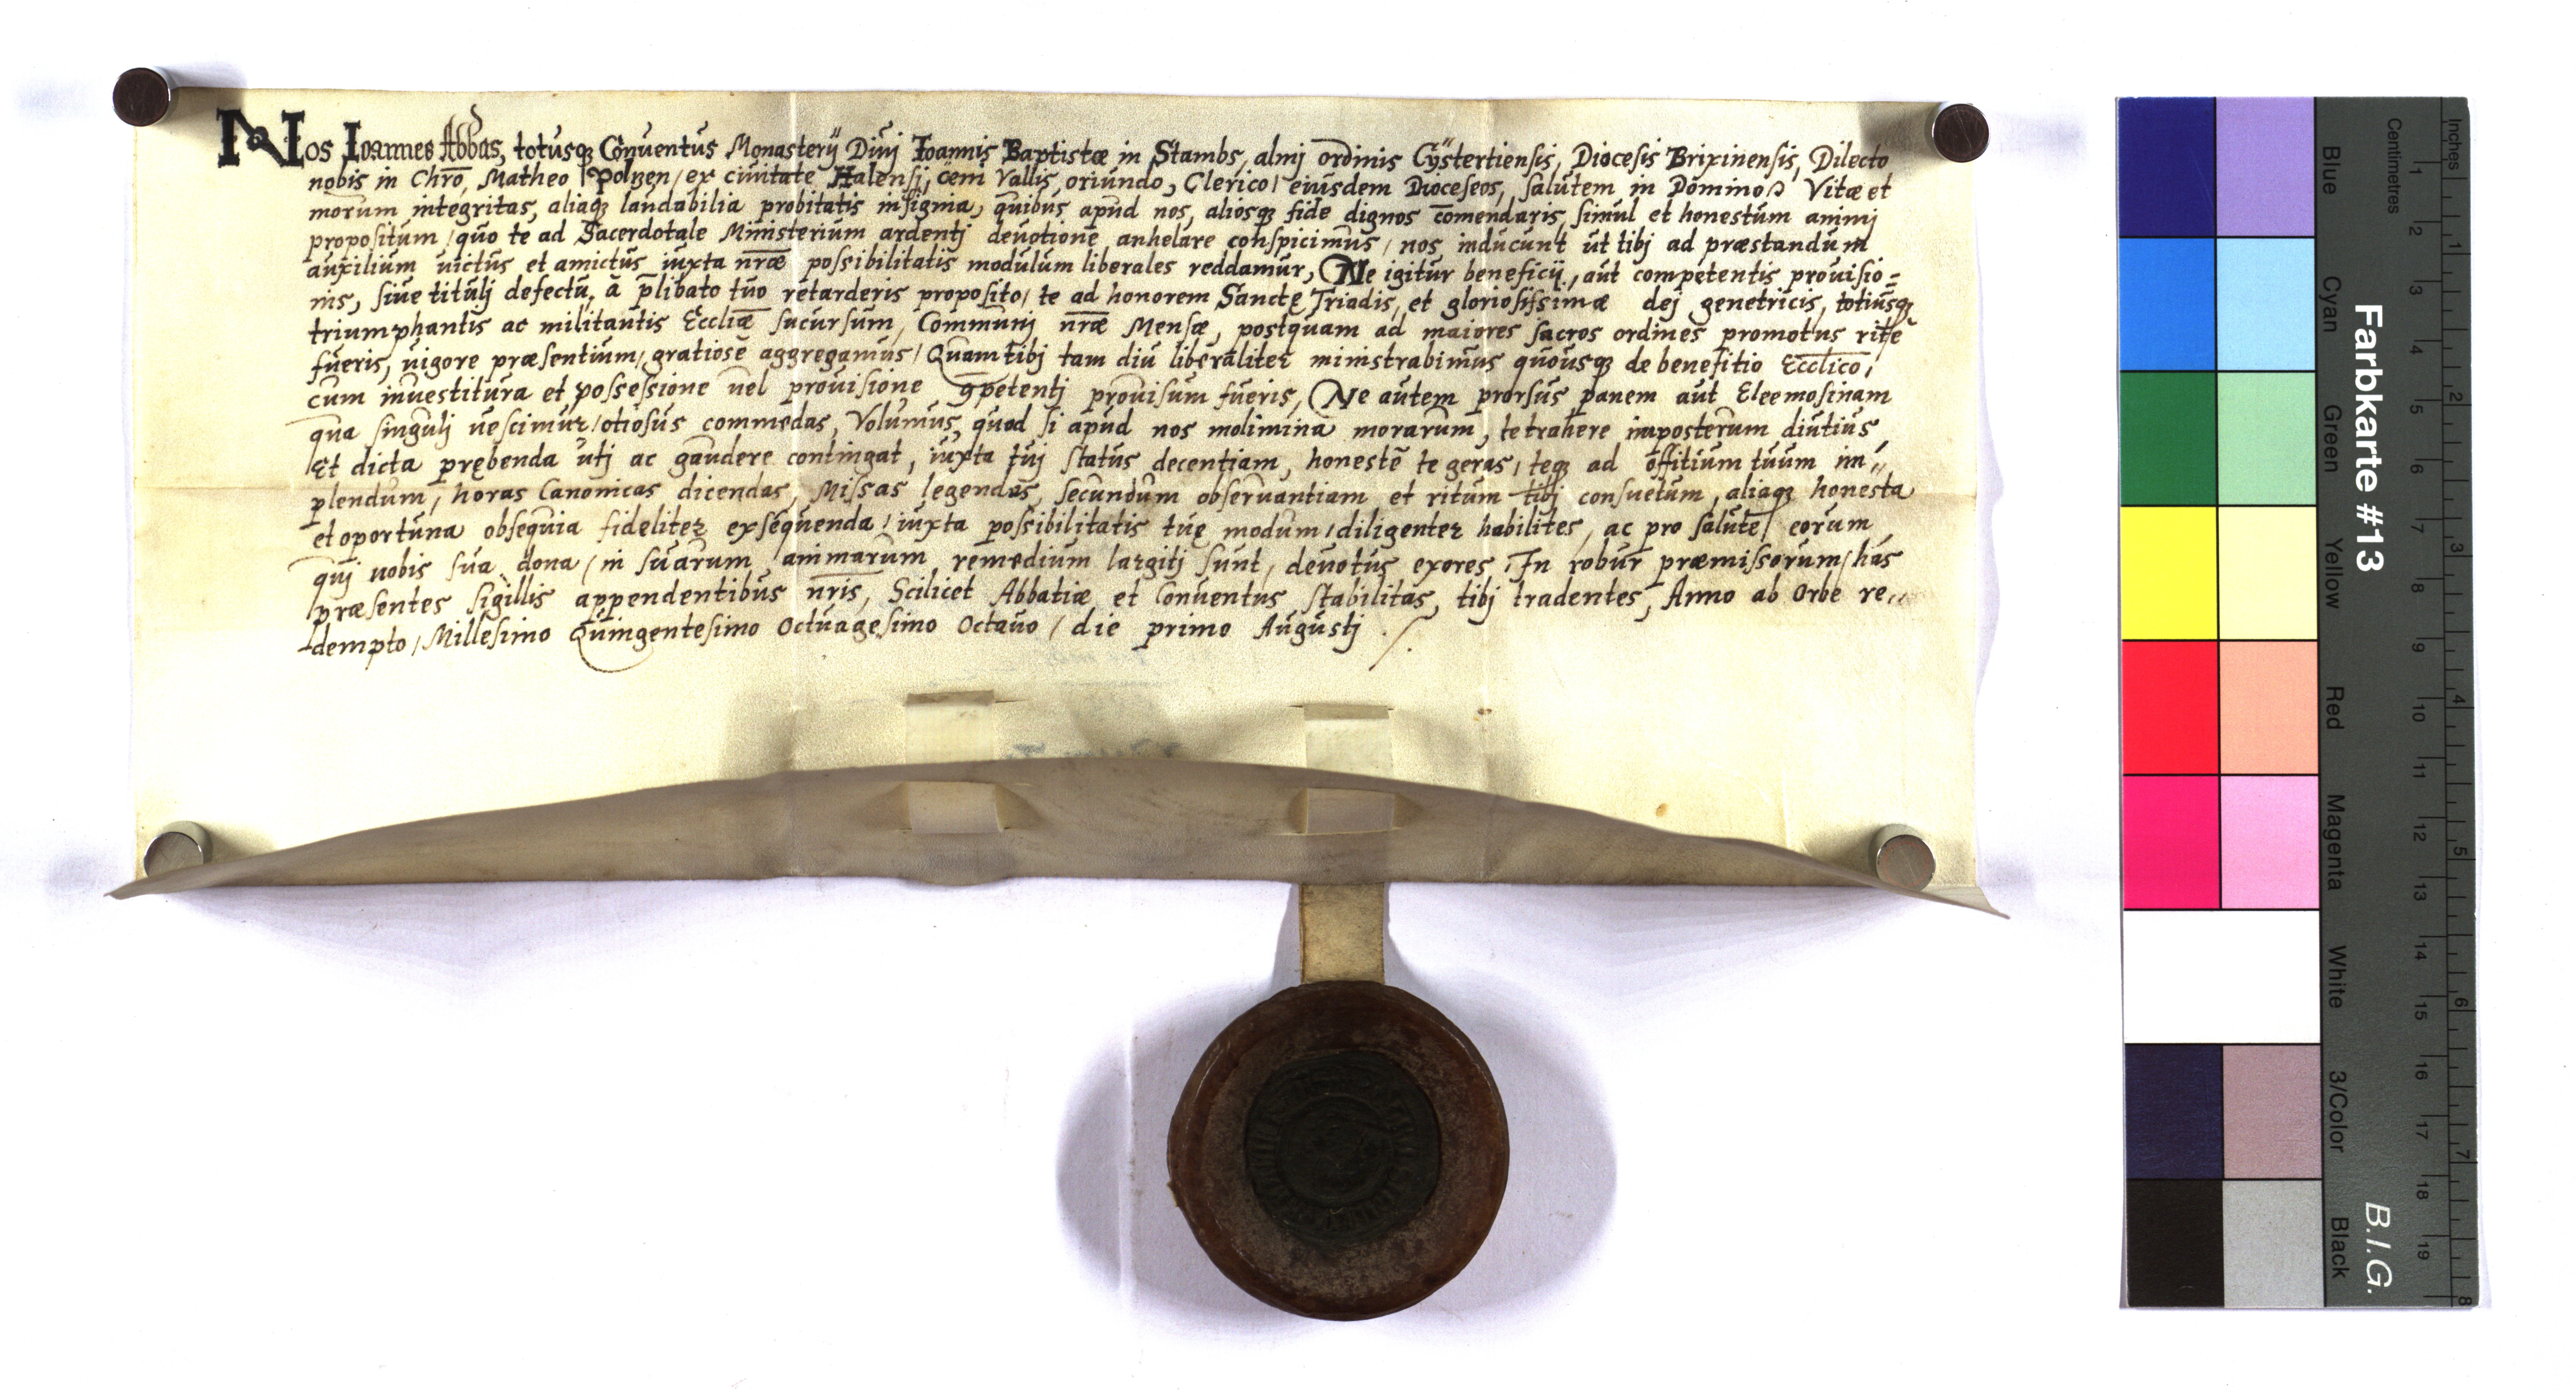 Nos Ioannes Abbas, totusq₃ Conuentus Monasterij Diuj Ioannis Baptistæ in Stambs, almj ordinis Cystertiensis, Diocesis Brixinensis, Dilecto
nobis in Chr̄o, Matheo ex ciuitate Halensj, Vallis, oriundo, Clerico, eiusdem Dioceseos, salutem in Domino, Vitæ et
morum integritas, aliaq₃ laudabilia probitatis insignia, quibus apud nos, aliosq₃ fide dignos com̄endaris, simul et honestum animj
propositum, quo te ad Sacerdotale Ministerium ardentj deuotione, anhelare conspicimus, nos inducunt ut tibj ad præstandum
auxilium uictus et amictus iuxta nr̄æ possibilitatis modulum liberales reddamur, Ne igitur beneficij, aut competentis prouisio=
nis, siue titulj defectu, a p̄libato tuo retarderis proposito, te ad honorem Sanctę Triadis, et gloriosissimæ dej genetricis, totiusq₃
triumphantis ac militantis Eccliæ sucursum, Communj nr̄æ Mensæ, postquam ad maiores sacros ordines promotus rite
fueris, uigore præsentium, gratiose aggregamus, Quam tibj tam diu liberaliter ministrabimus quousq₃ de benefitio Ecclico,
cum inuestitura et possessione uel prouisione ꝯpetentj prouisum fueris, Ne autem prorsus panem aut Eleemosinam
qua singulj uescimur, otiosus commedas, Volumus, quod si apud nos molimina morarum, te trahere imposterum diutius,
Et dicta prębenda utj ac gaudere contingat, iuxta tuj status decentiam, honestè te geras, teq₃ ad offitium tuum im„
plendum, horas Canonicas dicendas, Missas legendas, secundum obseruantiam et ritum tibj consuetum, aliaq₃ honesta
et oportuna obsequia fideliter exsequenda, iuxta possibilitatis tuę modum, diligenter habilites, ac pro salute eorum
quj nobis sua dona, in suarum animarum remedium largitj sunt, deuotus exores, In robur præmissorum, has
præsentes sigillis appendentibus nr̄is, Scilicet Abbatiæ et Conuentus stabilitas, tibj tradentes, Anno ab Orbe re„
dempto, Millesimo Quingentesimo Octuagesimo Octauo, die primo Augustj ./.
Farbkarte #13
B.I.G.
Centimetres
Inches
Blue
Cyan
Green
Yellow
Red
Magenta
White
3/Color
Black
1 2 3 4 5 6 7 8 9 10 11 12 13 14 15 16 17 18 19
1 2 3 4 5 6 7 8